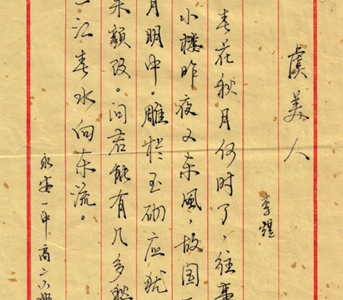 虞美人
李煜
春花秋月何时了，往事
小楼昨夜又东风，故国
月明中。雕栏玉砌应犹
朱颜改。问君能有几多愁
一江春水向东流。
永安一中高二